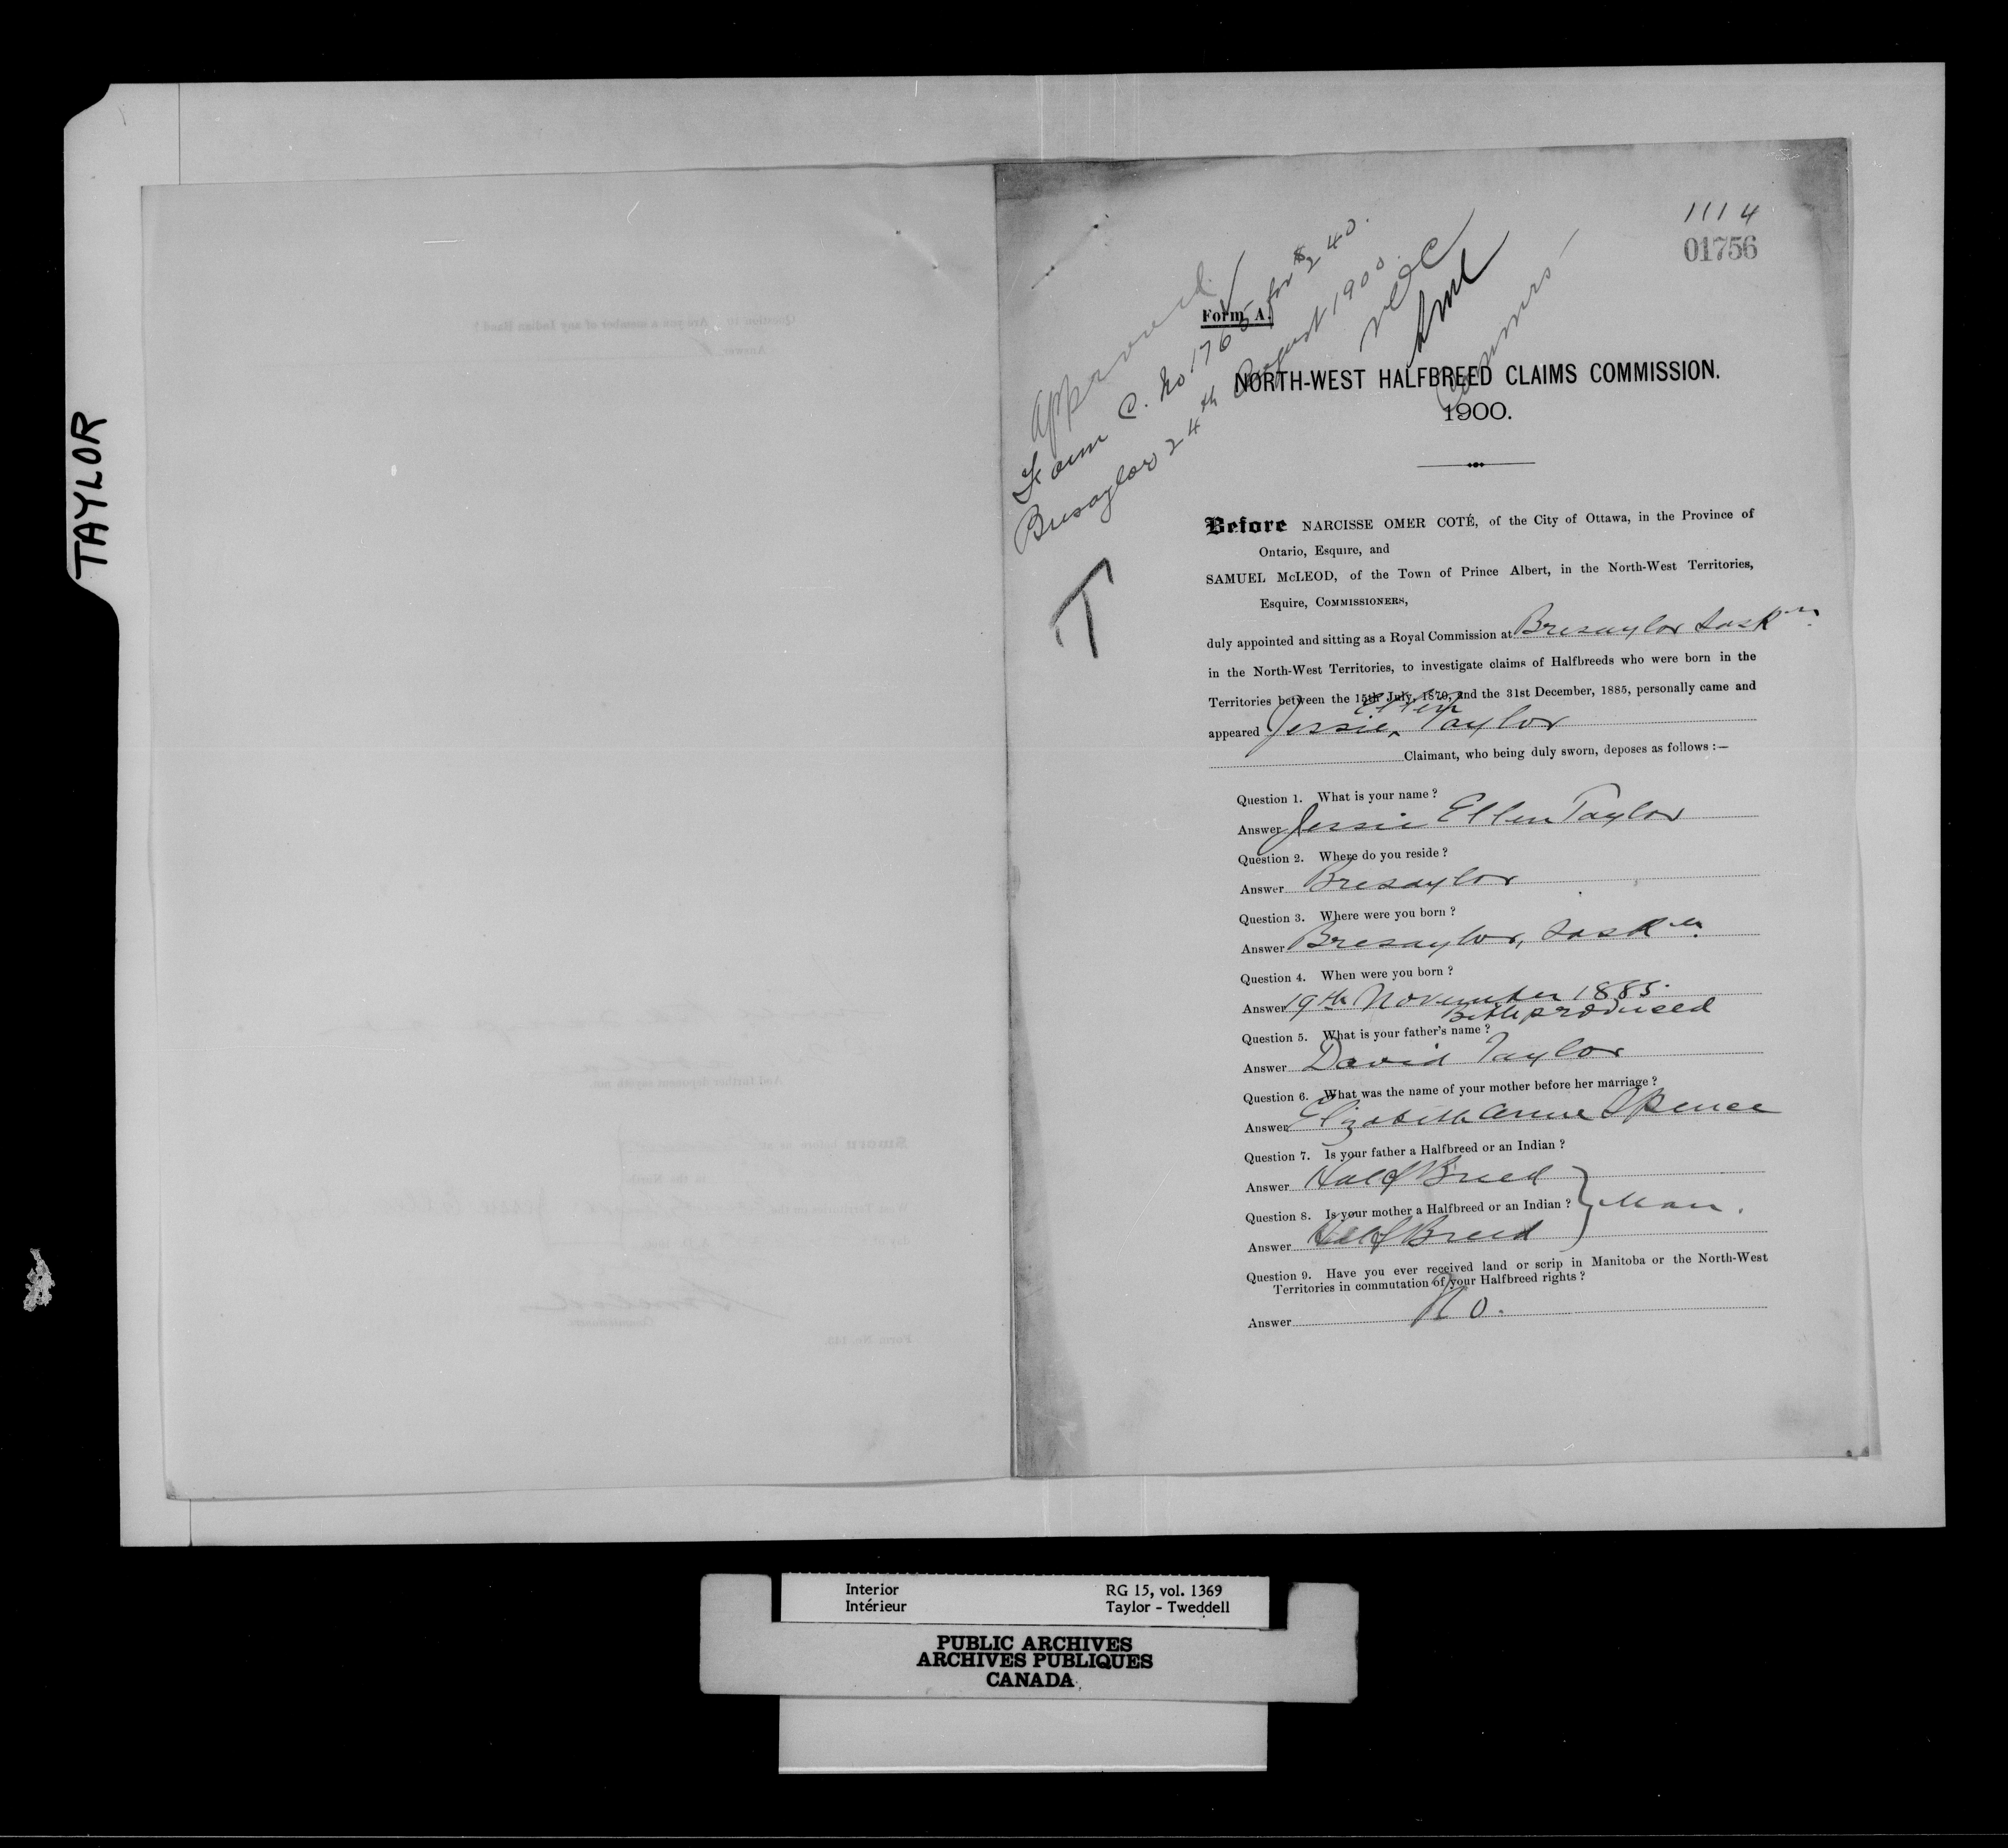 TAYLOR
1114
01756
Approved
Form C. No 1765 for $240.
Bresaylor 24th August 1900.
NOC
SML
Commrs
Form A.
NORTH-WEST HALFBREED CLAIMS COMMISSION.
1900.
T
Before NARCISSE OMER COTÉ, of the City of Ottawa, in the Province of
Ontario, Esquire, and
SAMUEL McLEOD, of the Town of Prince Albert, in the North-West Territories,
Esquire, COMMISSIONERS,
duly appointed and sitting as a Royal Commission at Bresaylor Sask
in the North-West Territories, to investigate claims of Halfbreeds who were born in the
Territories between the 15th July, 1870, and the 31st December, 1885, personally came and
appeared Jessie Ellen Taylor
Claimant, who being duly sworn, deposes as follows :—
Question 1. What is your name ?
Answer Jessie Ellen Taylor
Question 2. Where do you reside ?
Answer Bresaylor
Question 3. Where were you born ?
Answer Bresaylor, Sask
Question 4. When were you born ?
Answer 19th November 1885.
produced
Question 5. What is your father's name ?
Answer David Taylor
Question 6. What was the name of your mother before her marriage ?
Answer Elizabeth Anne Spence
Question 7. Is your father a Halfbreed or an Indian ?
Answer Half Breed
Question 8. Is your mother a Halfbreed or an Indian ? } Man.
Answer Half Breed
Question 9. Have you ever received land or scrip in Manitoba or the North-West
Territories in commutation of your Halfbreed rights ?
Answer No.
Interior
Intérieur
RG 15, vol. 1369
Taylor - Tweddell
PUBLIC ARCHIVES
ARCHIVES PUBLIQUES
CANADA